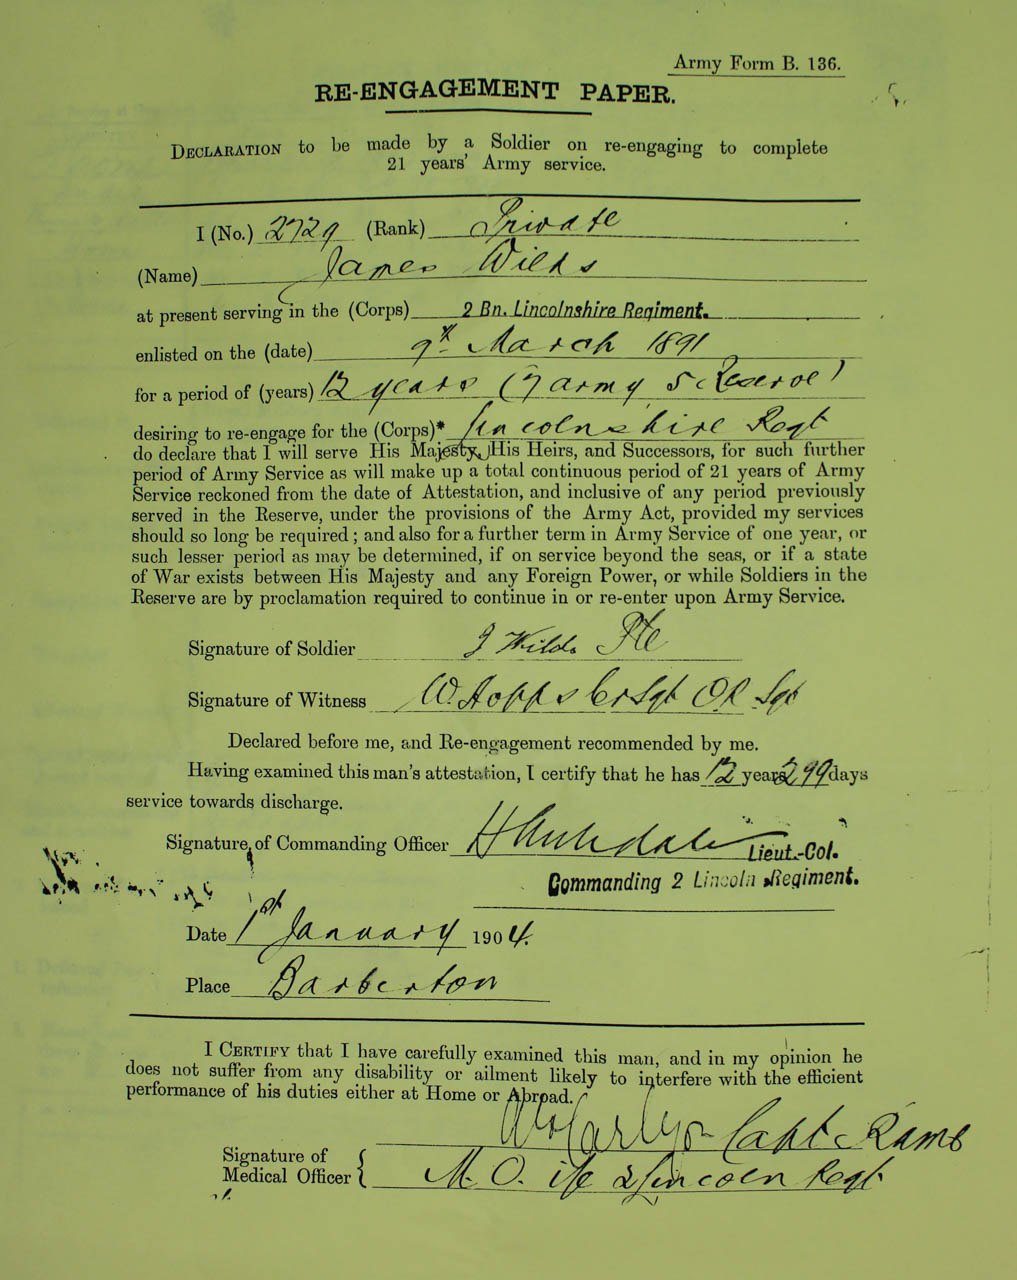 Army Form B. 136.
RE-ENGAGEMENT PAPER.
DECLARATION to be made by a Soldier on re-engaging to complete
21 years' Army service.
I (No.) 2729 (Rank) Private
(Name) James Wilds
at present serving in the (Corps) 2 Bn. Lincolnshire Regiment.
enlisted on the (date) 9th March 1891
for a period of (years) 12 years (7 army 5 Reserve)
desiring to re-engage for the (Corps)* Lincolnshire Regt
do declare that I will serve His Majesty, His Heirs, and Successors, for such further
period of Army Service as will make up a total continuous period of 21 years of Army
Service reckoned from the date of Attestation, and inclusive of any period previously
served in the Reserve, under the provisions of the Army Act, provided my services
should so long be required; and also for a further term in Army Service of one year, or
such lesser period as may be determined, if on service beyond the seas, or if a state
of War exists between His Majesty and any Foreign Power, or while Soldiers in the
Reserve are by proclamation required to continue in or re-enter upon Army Service.
Signature of Soldier J Wilds Pte
Signature of Witness W. Hopps Cr Sgt O.R. Sgt
Declared before me, and Re-engagement recommended by me.
Having examined this man's attestation, I certify that he has 12 years 299 days
service towards discharge.
Signature of Commanding Officer Lieut.-Col.
Commanding 2 Lincoln Regiment.
Date 1st January 1904.
Place Barberton
I CERTIFY that I have carefully examined this man, and in my opinion he
does not suffer from any disability or ailment likely to interfere with the efficient
performance of his duties either at Home or Abroad.
Capt RAMC
Signature of
Medical Officer M. O. i/c 2 Lincoln Regt